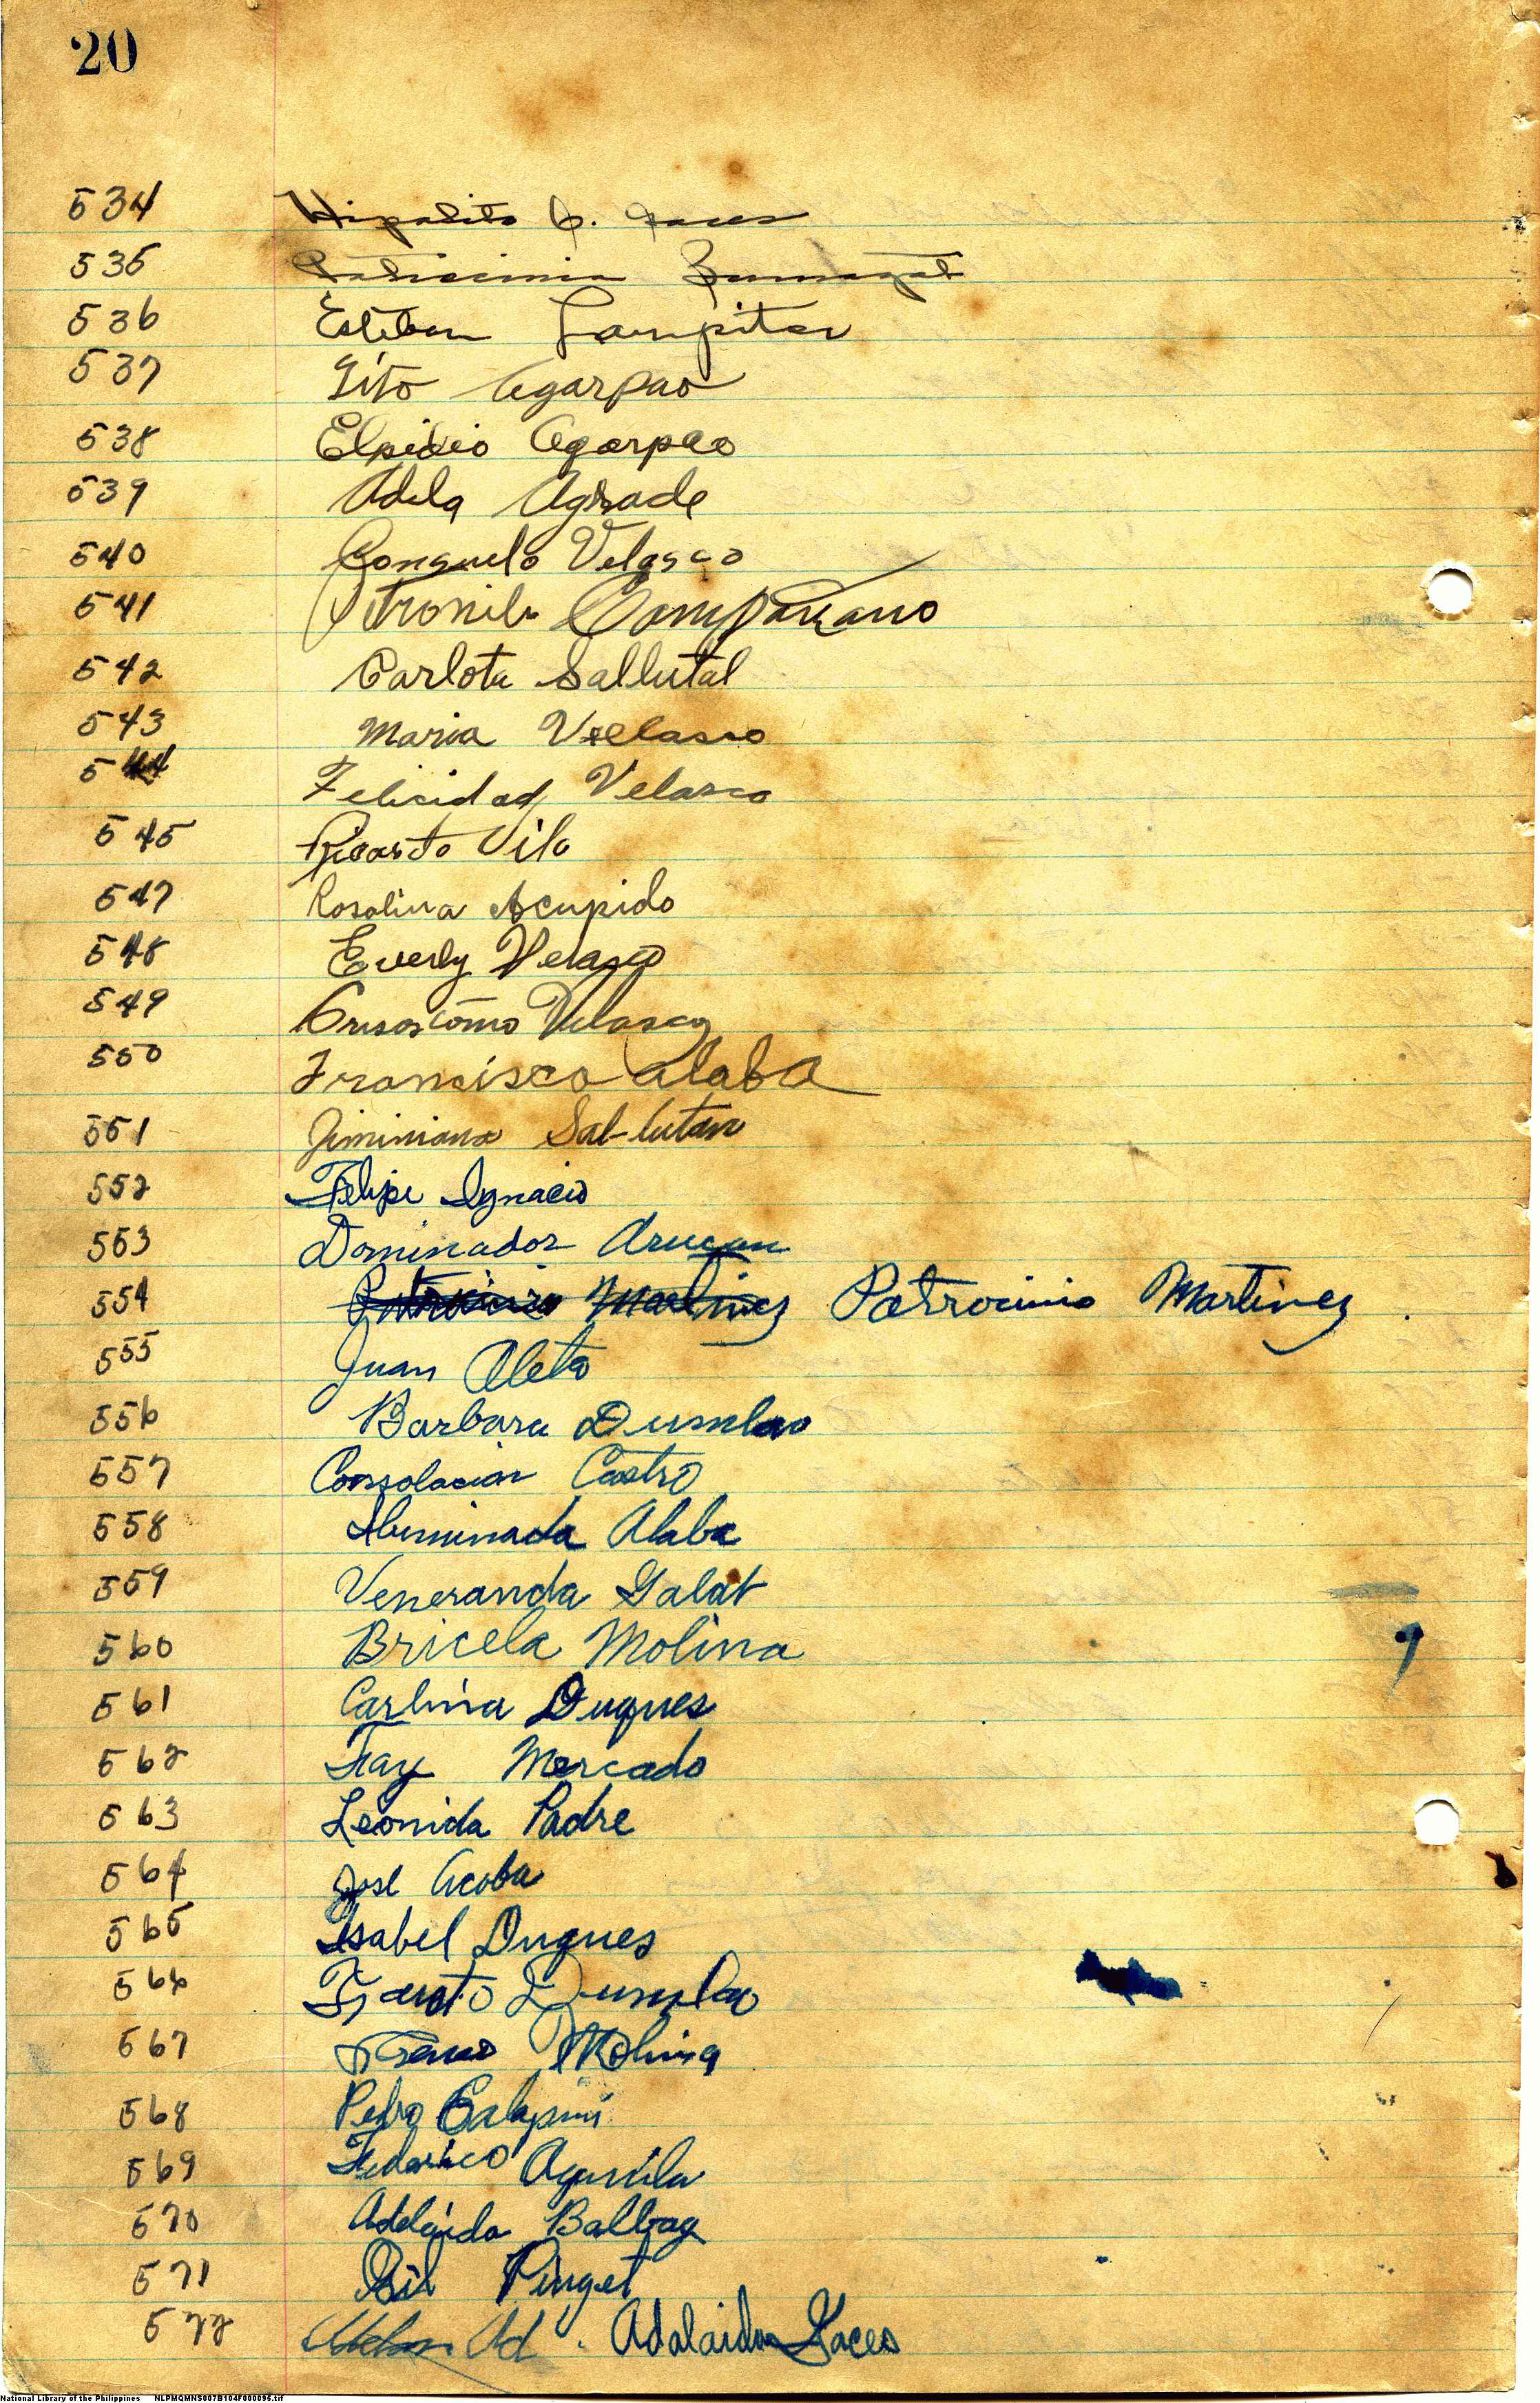 20
534 Hipolito
535
536 Esteban
537 Tito Agarpao
538 Elpidio Agarpao
539 Adela Agrade
540 Consuelo Velasco
541
542 Carlota Sallutal
543 Maria Vellasco
544 Felicidad Velasco
545 Ricardo Vila
547 Rosalina Acupido
548 Everly Velasco
549 Crisostomo Velasco
550 Francisco Alaba
551 Jiminiana Sal-lutan
552 Felipe Ignacio
553 Dominador Arucan
554 Patrocinio Martinez Patrocinio Martinez
555 Juan Oleta
556 Barbara Dumlao
557 Consolacion Castro
558 Iluminada Alaba
559 Veneranda Galat
560 Bricela Molina
561 Carlina Duques
562 Fay Mercado
563 Leonida Padre
564 Jose Acoba
565 Isabel Duques
566 Fausto Dumlao
567 Molina
568 Pedro
569 Federico Aguila
570 Adelaida Balbag
571 Gil Pinget
572 Ad. Adalaida Gaces
National Library of the Philippines NLPMQMNS007B104F000095.tif